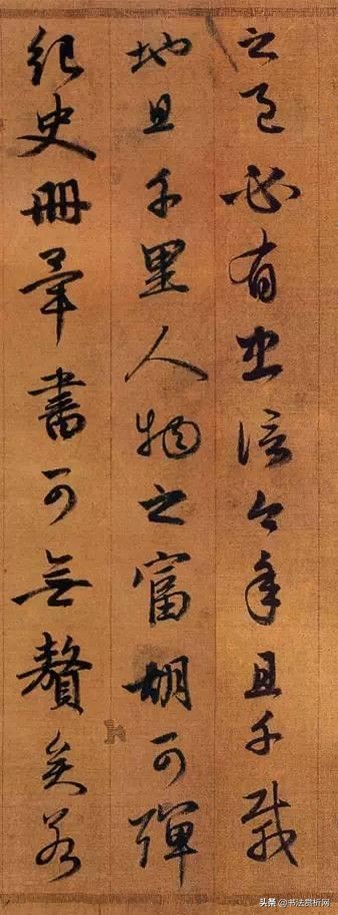 之邑必有忠信今年且千載
地且千里人物之富胡可殫
紀史冊畢書可無贅矣若
头条 @书法赏析网